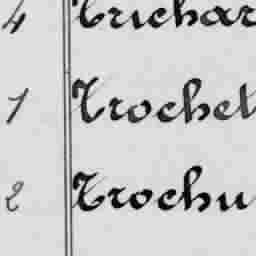 4 Trichar
1 Trochet
2 Trochu